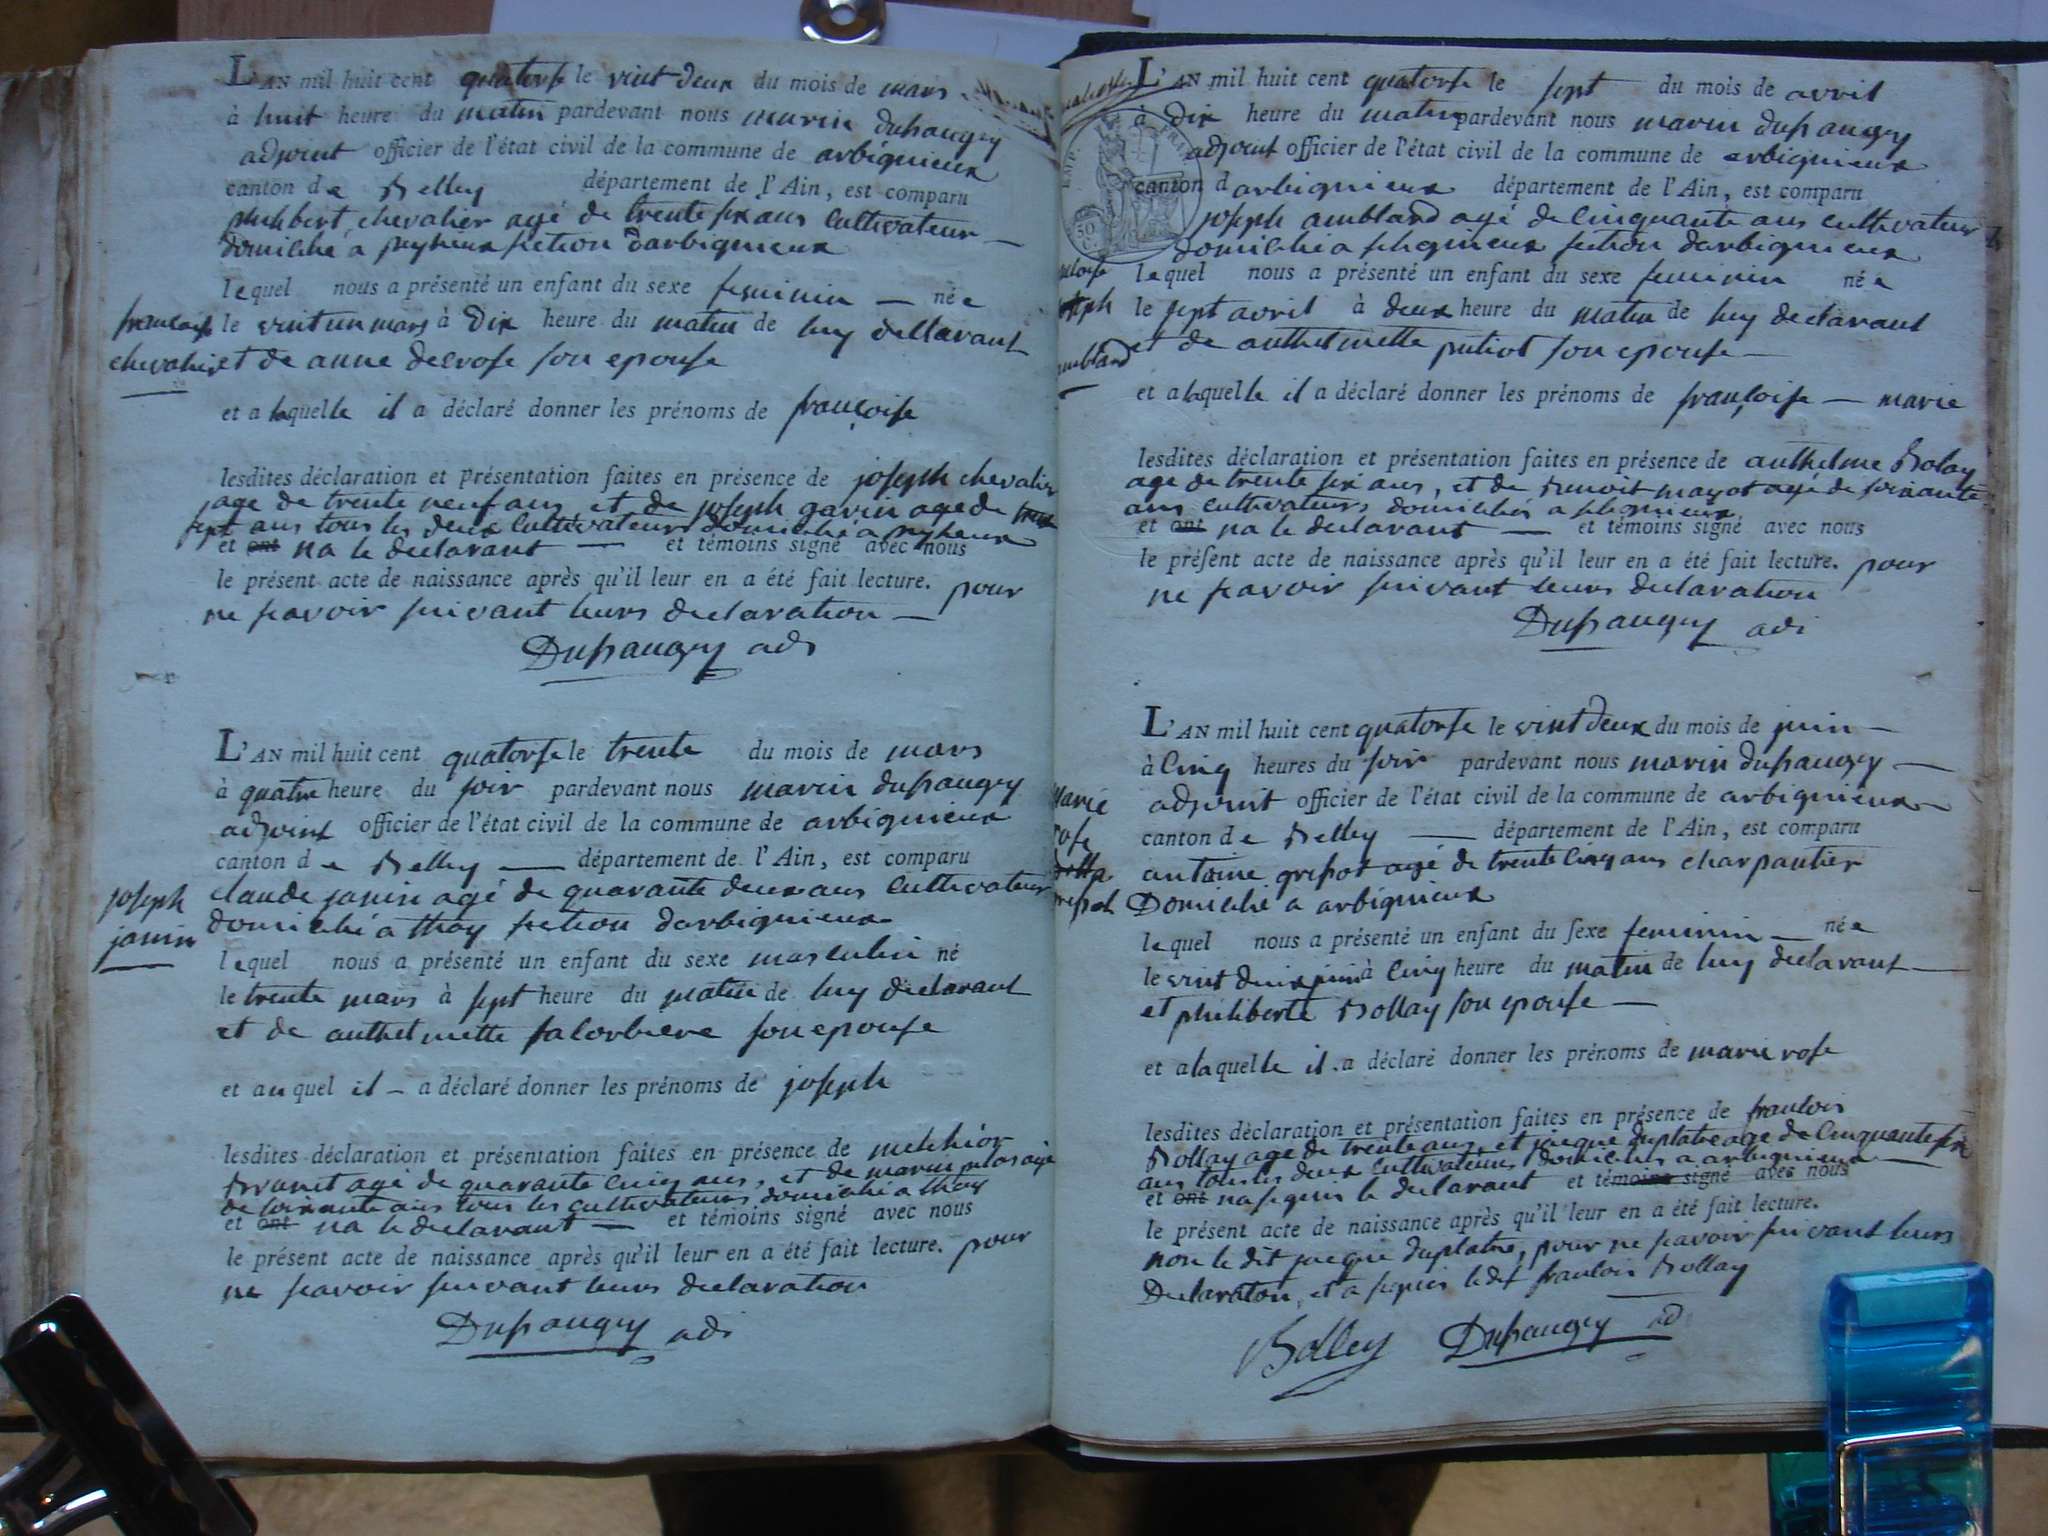 L'AN mil huit cent quatorse le vint deux du mois de mars
à huit heure du matin pardevant nous marin dusaugey
adjoint officier de l'état civil de la commune de arbignieux
canton de Belley département de l'Ain, est comparu
philibert chevalier agé de trente six ans cultivateur
domicilié a peyzieux section darbignieux
lequel nous a présenté un enfant du sexe feminin — née
francoise le vint un mars à dix heure du matin de luy declarant
chevalier et de anne decrose son epouse
et a laquelle il a déclaré donner les prénoms de françoise
lesdites déclaration et présentation faites en présence de joseph chevalier
age de trente neuf ans et de joseph gavin age de
sept ans tous les deux cultivateurs domicilié a peyzieux
et ont na le declarant — et témoins signé avec nous
le présent acte de naissance après qu'il leur en a été fait lecture. pour
ne scavoir suivant leurs declaration —
Dusaugey adj
L'AN mil huit cent quatorse le trente du mois de mars
à quatre heure du soir pardevant nous marin dusaugey
adjoint officier de l'état civil de la commune de arbignieux
canton de Belley — département de l'Ain, est comparu
claude janin agé de quarante deux ans cultivateur
domicilié a thoy section darbignieux
joseph
janin
lequel nous a présenté un enfant du sexe masculin né
le trente mars à sept heure du matin de luy declarant
et de anthelmette son epouse
et au quel il — a déclaré donner les prénoms de joseph
lesdites déclaration et présentation faites en présence de melchior
agé de quarante cinq ans, et de marin agé
de soixante ans tous les cultivateurs domicilié a thoy
et ont na le declarant — et témoins signé avec nous
le présent acte de naissance après qu'il leur en a été fait lecture. pour
ne scavoir suivant leurs declaration
Dusaugey adj
L'AN mil huit cent quatorse le sept du mois de avril
à dix heure du matin pardevant nous marin dusaugey
adjoint officier de l'état civil de la commune de arbignieux
canton darbignieux département de l'Ain, est comparu
joseph amblard agé de cinquante ans cultivateur
domicilié a slignieux section darbignieux
lequel nous a présenté un enfant du sexe feminin née
le sept avril à deux heure du matin de luy declarant
et de anthelmette son epouse —
et a laquelle il a déclaré donner les prénoms de françoise — marie
lesdites déclaration et présentation faites en présence de anthelme Bolay
age de trente six ans, et de Benoit agé de soixante
ans cultivateurs domiciliés a slignieux
et ont na le declarant — et témoins signé avec nous
le présent acte de naissance après qu'il leur en a été fait lecture. pour
ne scavoir suivant leurs declaration
Dusaugey adj
L'AN mil huit cent quatorse le vint deux du mois de juin —
à cinq heures du soir pardevant nous marin dusaugey —
marie adjoint officier de l'état civil de la commune de arbignieux
rose canton de Belley — département de l'Ain, est comparu
antoine gripot agé de trente cinq ans charpantier
Domicilié a arbignieux
lequel nous a présenté un enfant du sexe feminin — née
le vint deux juin à cinq heure du matin de luy declarant —
et philiberte Bollay son epouse —
et a laquelle il a déclaré donner les prénoms de marie rose
lesdites déclaration et présentation faites en présence de francois
Bollay age de trente ans, et jacque duplatre age de cinquante six
ans tous les deux cultivateurs domiciliés a arbignieux
et ont na signer le declarant et témoins signé avec nous
le présent acte de naissance après qu'il leur en a été fait lecture.
non le dit jacque duplatre, pour ne scavoir suivant leurs
Declaration, et a signer ledit francois Bollay
Bolley Dusaugey adj